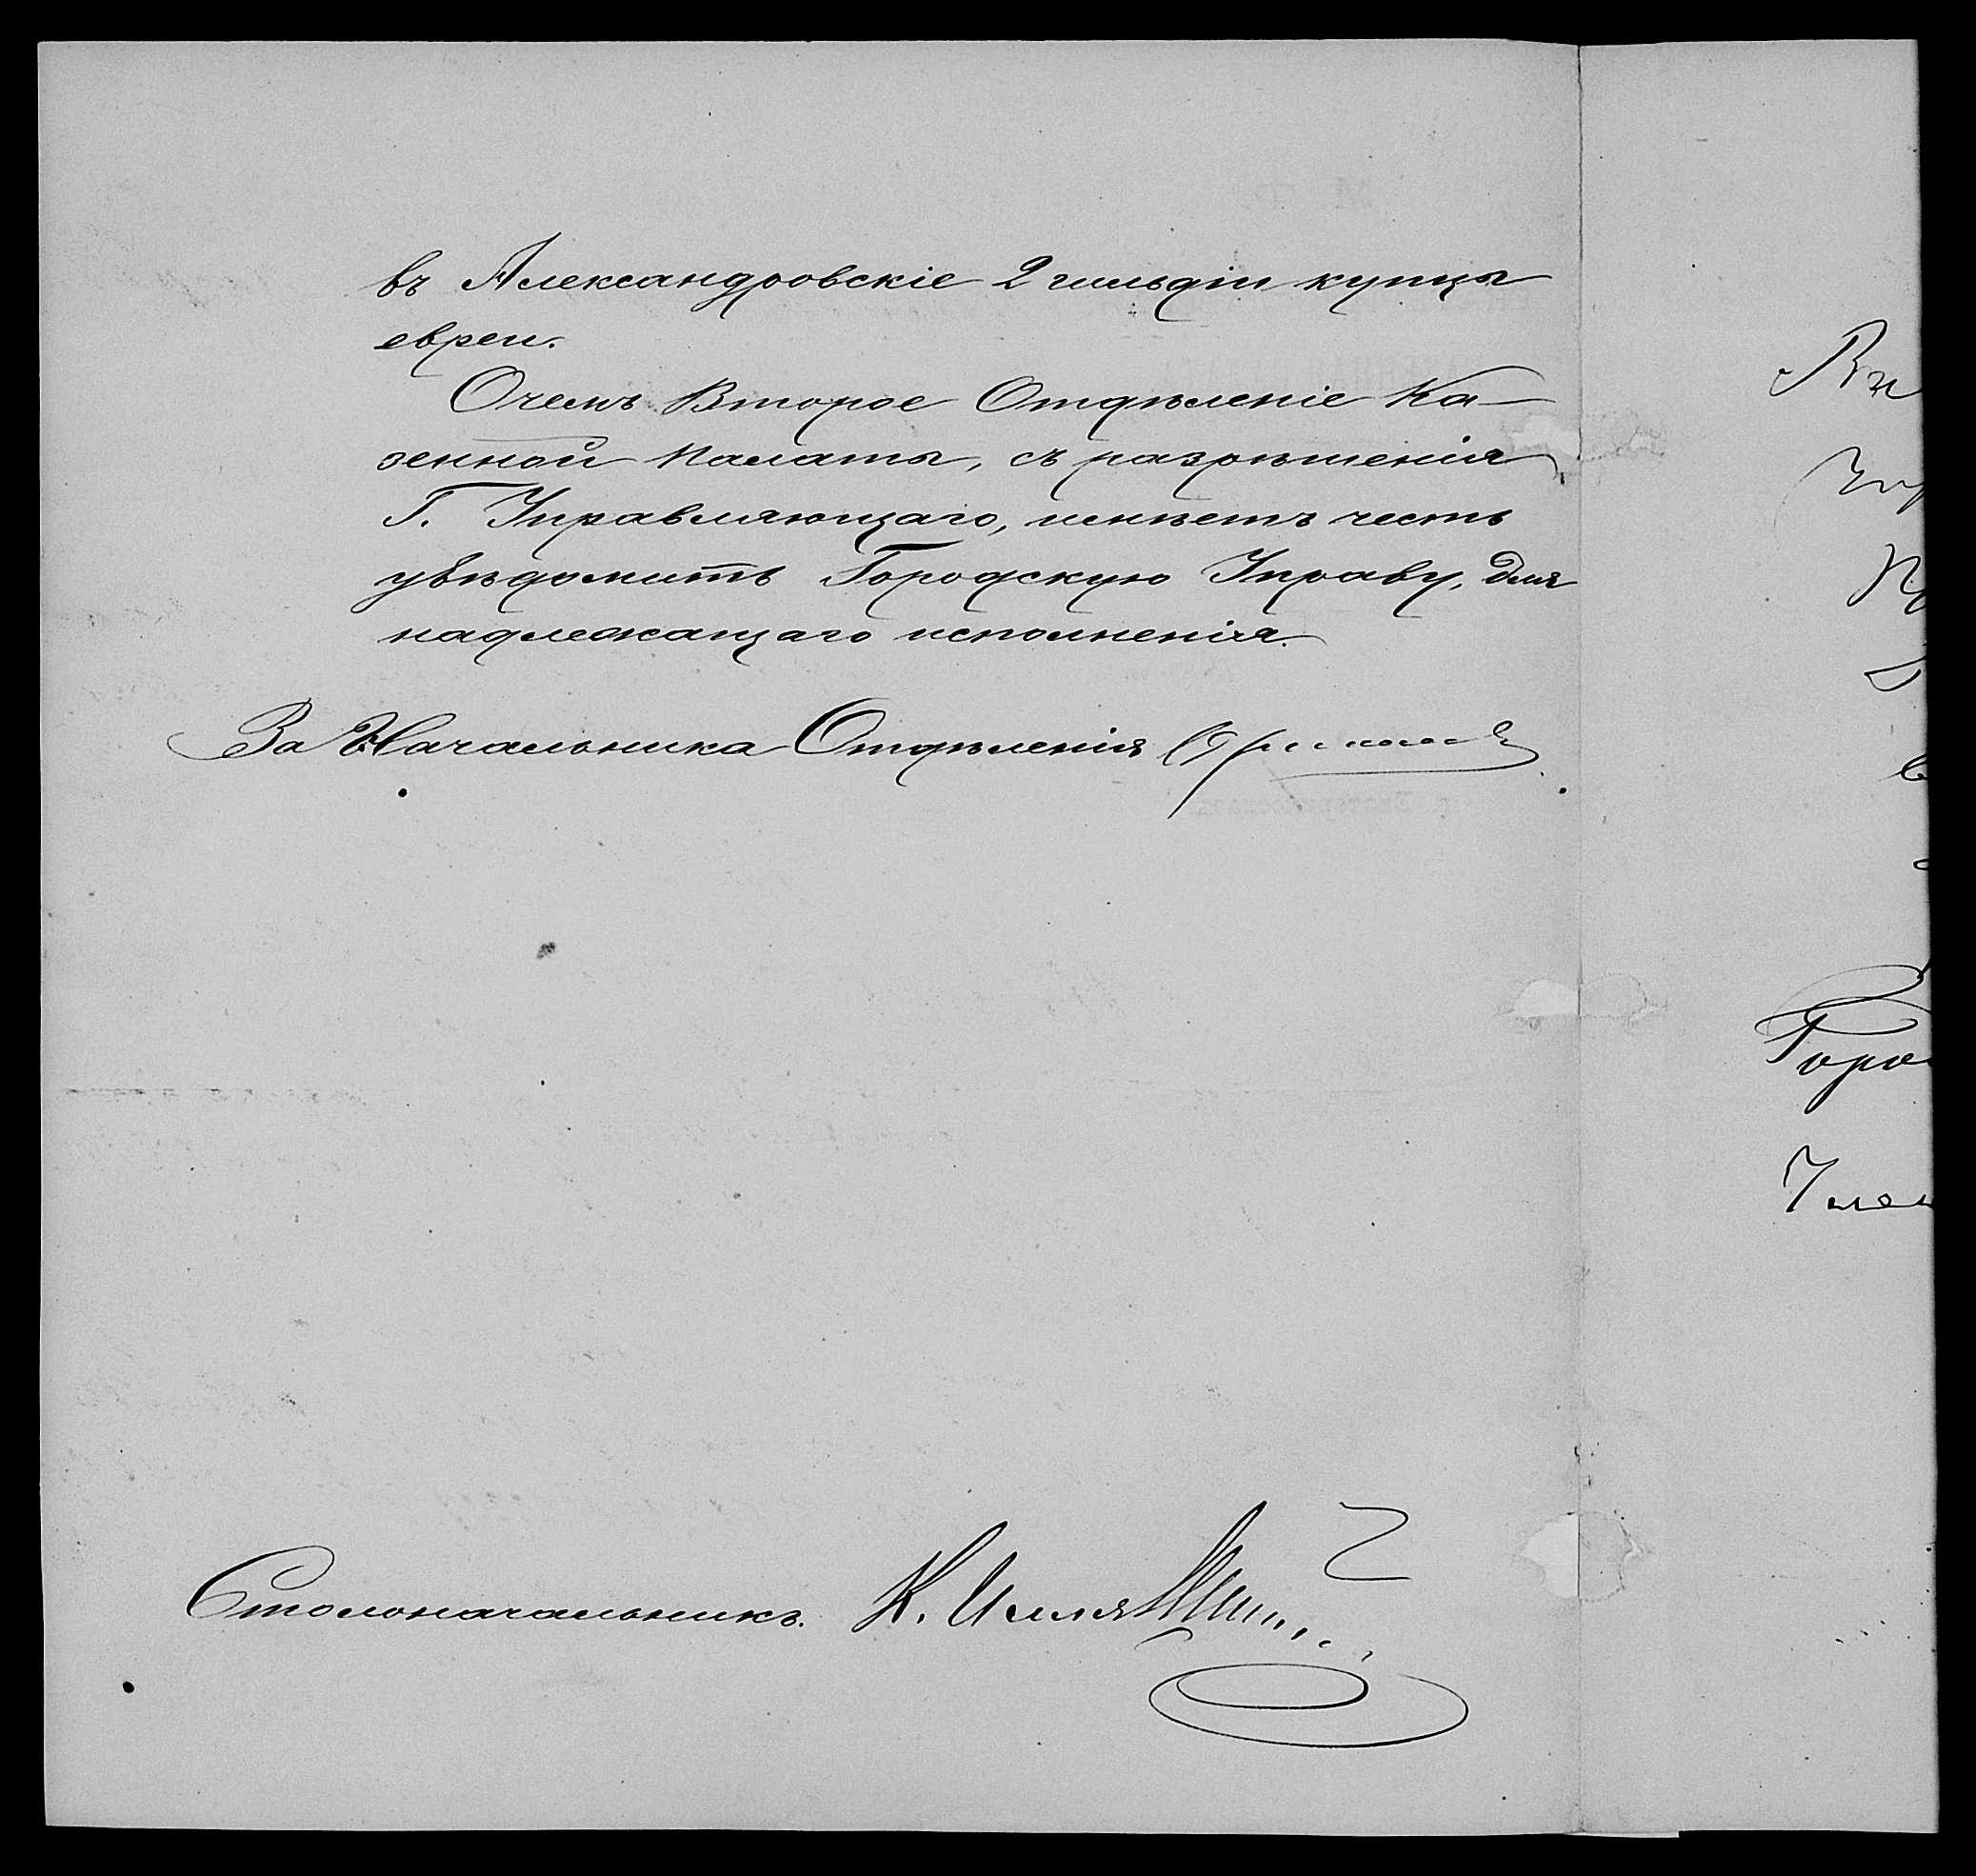 въ Александровскіе 2 гильдіи купцы
евреи.
О чемъ Второе Отдѣленіе Ка-
зенной Палаты, съ разрѣшенія
Г. Управляющаго, имѣетъ честь
увѣдомить Городскую Управу, для
надлежащаго исполненія.
За Начальника Отдѣленія
Столоначальникъ. К.
Горо
Член